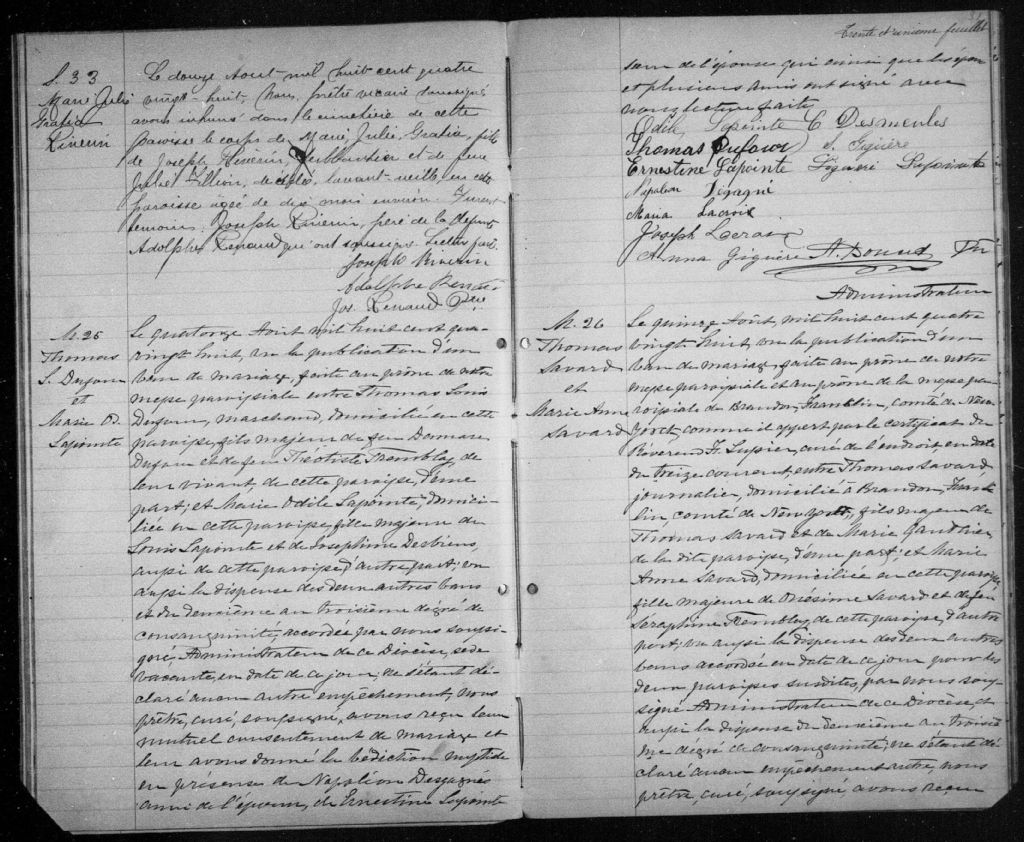 S. 33
Marie Julie
Gratia
Riverin
Le douze Aout mil huit cent quatre
vingt-huit, Nous, prêtre vicaire soussigné
avons inhumé dans le cimetière de cette
paroisse le corps de Marie Julie Gratia, fille
de Joseph Riverin, et de feue
Julie Fillion, décédée, l'avant-veille, en cette
paroisse agée de dix mois environ. Furent
témoins Joseph Riverin, père de la défunte
Adolphe Renaud qui ont soussigné. Lecture faite
Joseph Riverin
Adolphe Renaud
Jos. Renaud Ptre
M. 25
Thomas
L. Dufour
et
Marie O.
Lapointe
Le quatorze Août mil huit cent qua-
vingt huit, vu la publication d'un
ban de mariage, faite au prône de notre
messe paroissiale entre Thomas Louis
Dufour, marchand, domicilié en cette
paroisse, fils majeur de feu Damase
Dufour et de feu Théotiste Tremblay, de
leur vivant, de cette paroisse, d'une
part; et Marie Odile Lapointe, domici-
liée en cette paroisse, fille majeure de
Louis Lapointe et de Josephine Desbiens,
aussi de cette paroisse, d'autre part; vu
aussi la dispense des deux autres bans
et du deuxième au troisième dégré de
consanguinité, accordée par nous soussi-
gné, Administrateur de ce Diocèse, sede
vacante, en date de ce jour; ne s'étant dé-
claré aucun autre empêchement, nous
prêtre, curé, soussigné, avons reçu leur
mutuel consentement de mariage et
leur avons donné la bédiction nuptiale
en présence de Napoléon Degagnés
ami de l'époux, de Ernestine Lapointe
Trente et unieme feuillet
sœur de l'épouse qui ainsi que les époux
et plusieurs amis ont signé avec
nous lecture faite
Odile Lapointe C Desmeules
Thomas Dufour J. Giguère
Ernestine Lapointe Lapointe
Napoléon Degagné
Maria Lacroix
Joseph
Anna Giguère A. Ptre
Administrateur
M. 26
Thomas
Savard
et
Marie Anne
Savard
Le quinze Août, mil huit cent quatre
vingt huit, vu la publication d'un
ban de mariage, faite au prône de notre
messe paroissiale et au prône de la messe pa-
roissiale de Brandon, Franklin, comté de New
York, comme il appert par le certificat du
Révérend F. curé de l'endroit, en date
du treize courant, entre Thomas Savard,
journalier, domicilié à Brandon, Frank
lin, comté de New York, fils majeur de
Thomas Savard et de Marie Gauthier
de la dite paroisse, d'une part; et Marie
Anne Savard, domiciliée en cette paroisse
fille majeure de Onésime Savard et de feu
Séraphine Tremblay, de cette paroisse, d'autre
part; vu aussi la dispense des deux autres
bans accordée en date de ce jour pour les
deux paroisses susdites, par nous sous-
signé Administrateur de ce Diocèse, et
aussi la dispense du deuxième au troisiè
me dégré de consanguinité; ne s'étant dé
claré aucun empêchement autre, nous
prêtre, curé, soussigné avons reçu